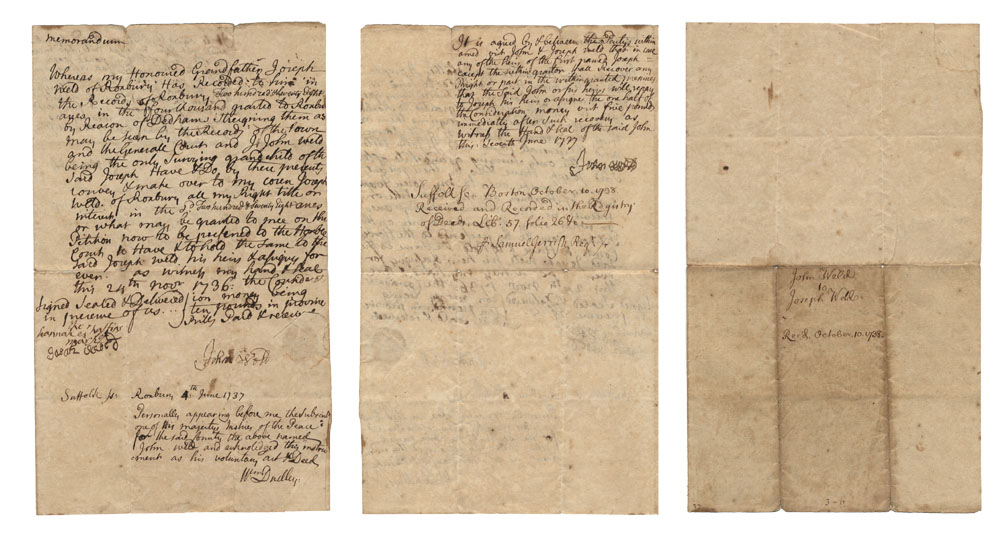 memorandum
Whereas my Honoured Grandfather Joseph
Weld of Roxbury Has Recorded to him in
the Records of Roxbury Two hundred & twenty Eight
acres in the four thousand granted to Roxbury
by Reason of Dedham Streigning them as
may be seen by the Records of the town
and the Generall Court and I John Weld
being the only Surviving grandchild of the
said Joseph Have & Do by these presents
convey & make over to my cousn Joseph
Weld of Roxbury all my Right title or
interest in the sd Two hundred & twenty Eight acres
or what may be granted to mee on the
Petition now to be prefered to the Honble
Court to Have & to hold the Same to the
said Joseph Weld his heirs & assignes for
ever as witness my hand & seal
this 24th Novr 1736: the Conside
Signed Sealed & Delivered ion money being
in presence of us ten pounds in province
hannah
Bills Paid & receive
mark
John Weld
Suffolk ss. Roxbury 4th June 1737
Personally appearing before me the Subscriber
one of his majestys Justices of the Peace
for the said County the above named
John Weld and acknoledged this instru
ment as his voluntary act & Deed
Wm Dudley
It is agreed by & between the Partys within
named vizt John & Joseph Weld that in case
any of the of the first grantee Joseph
except the within grantor shall Recover any
Right or part in the within granted premises
that the Said John or his heirs will repay
to Joseph his heirs or assignes the one half of
the Consideration money vizt five pounds
immediately after such recovery as
witness the Hand & Seal of the said John
this Seventh June 1737
John Weld
Suffolk ss. Boston October. 10. 1738.
Received and Recorded in the Registry
of Deeds Lib: 57. folio 26 &c
℘ Samuel Gerrish Regr.
John Weld
to
Joseph Weld
Recd. October. 10. 1738.
3-11